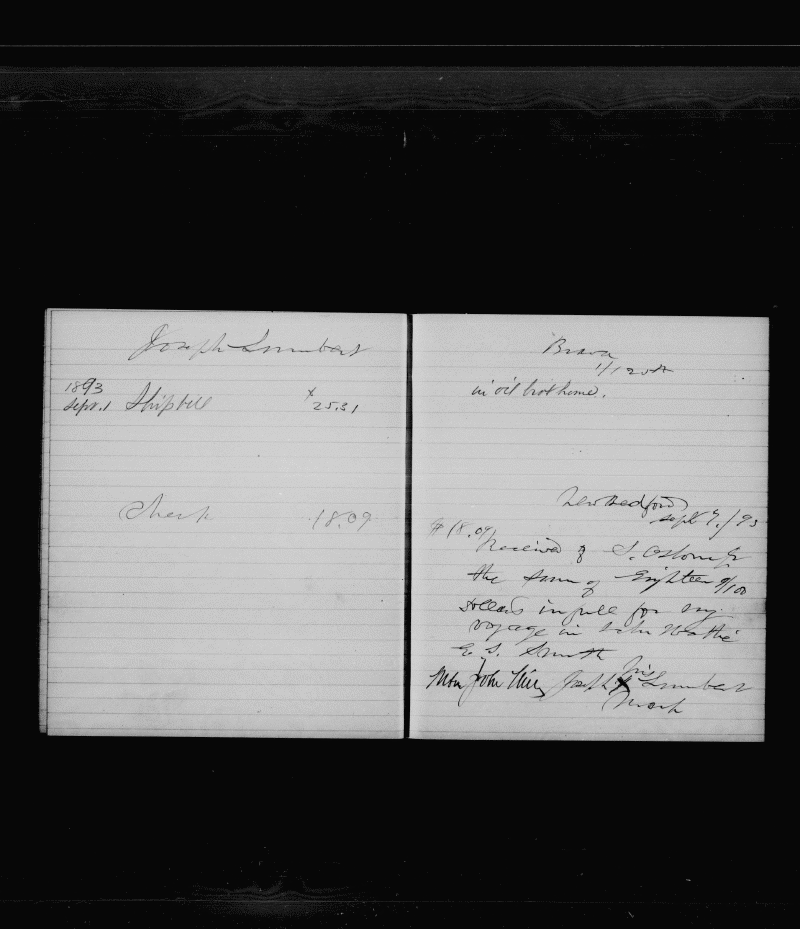 Joseph Lumbert
1893
Sept. 1 Shipbill x 25.31
Check 18.09
Brava
1/120th
in oil brot home.
New Bedford
Sept 7. / 93
$18.09
Received of S. Osborn Jr
the sum of Eighteen 9/100
Dollars in full for my
voyage in Schr Mattie
E. S. Smith
John his
Joseph X Lumbert
mark